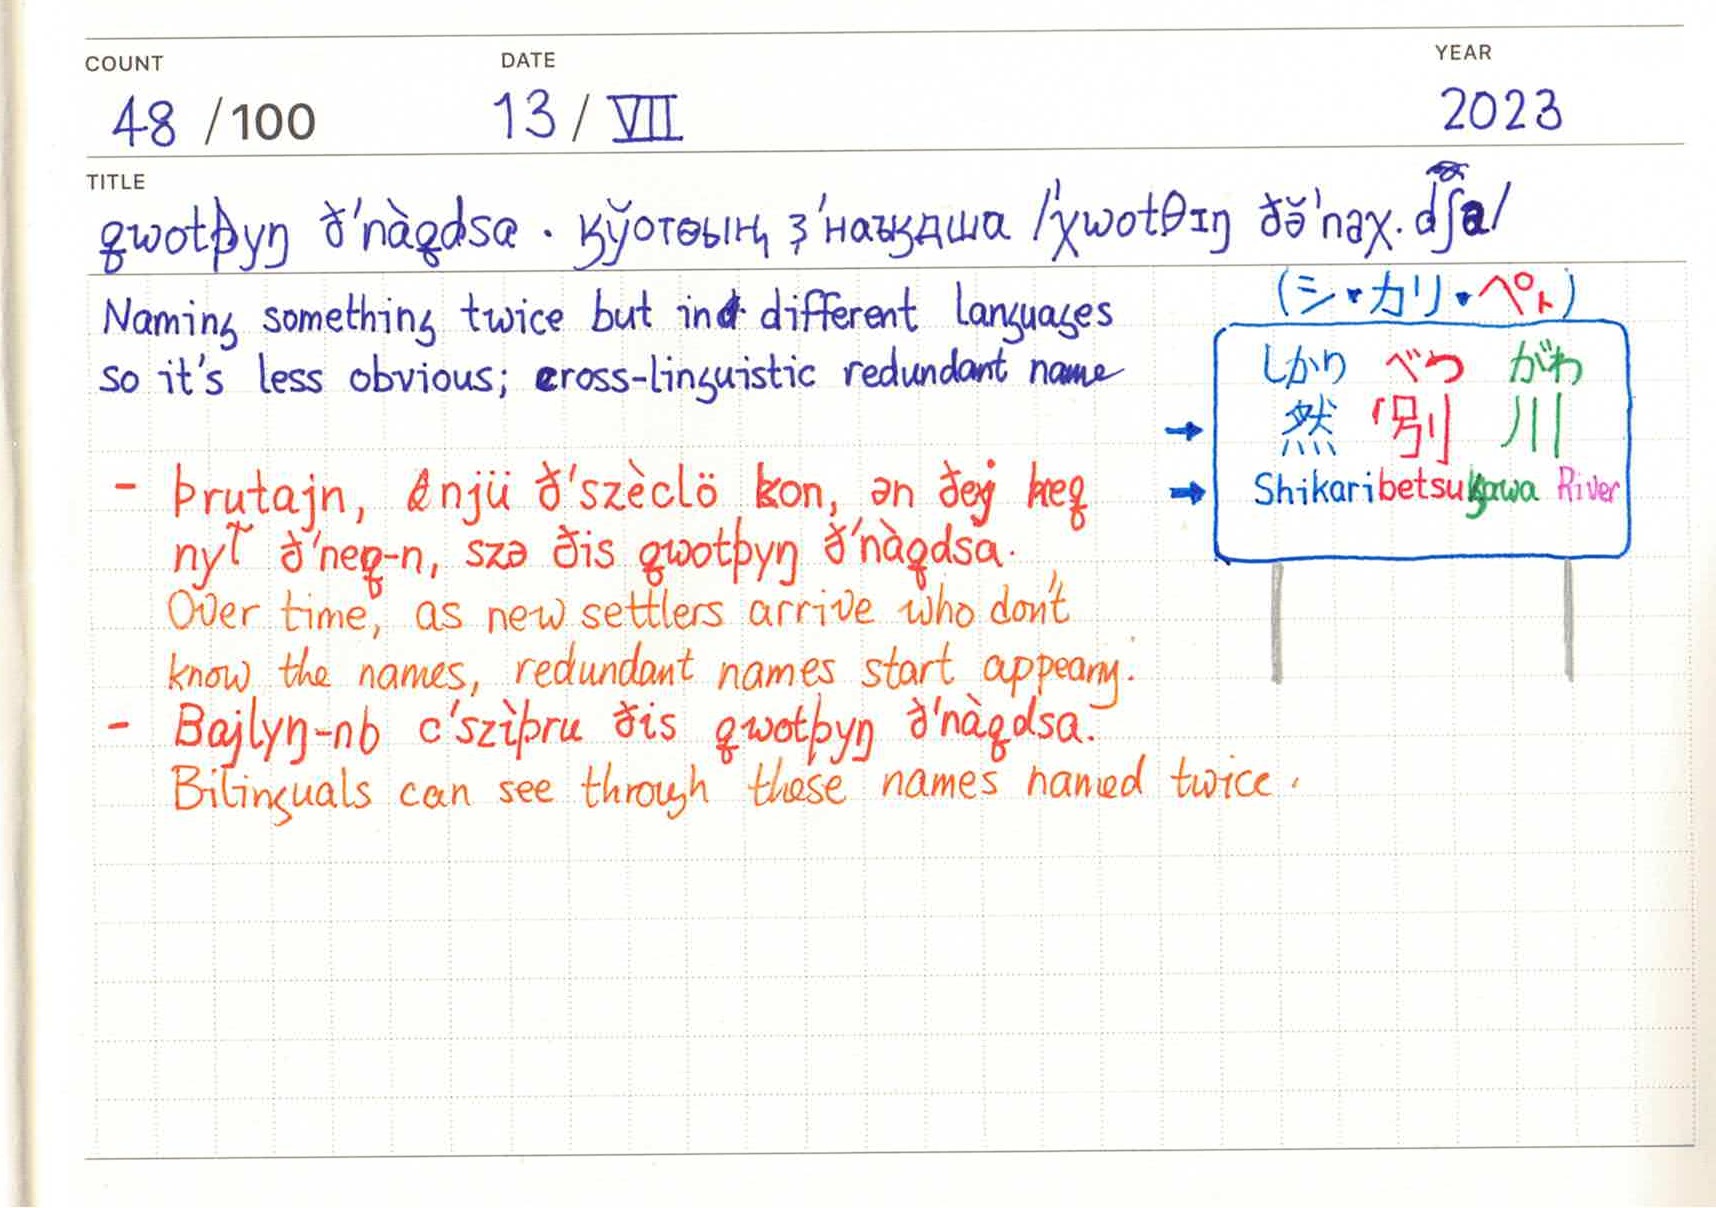 COUNT
DATE
YEAR
48 /100
13 / VII
2023
TITLE
qwotþyŋ ð'nàqdsa · қўотѳың ҙ'наъқдша /'χwotθɪŋ ðə̆'naχ.dʃa/
Naming something twice but in different languages
so it's less obvious; cross-linguistic redundant name
(シ・カリ・ペㇳ)
しかり べつ がわ
然 別 川
Shikaribetsukawa River
- Þrutajn, enjü ð'szèclö kon, ən ðej heq
nyť ð'neq-n, szə ðis qwotþyŋ ð'nàqdsa.
Over time, as new settlers arrive who don't
know the names, redundant names start appearing.
- Bajlyŋ-nb c'szìþru ðis qwotþyŋ ð'nàqdsa.
Bilinguals can see through these names named twice.